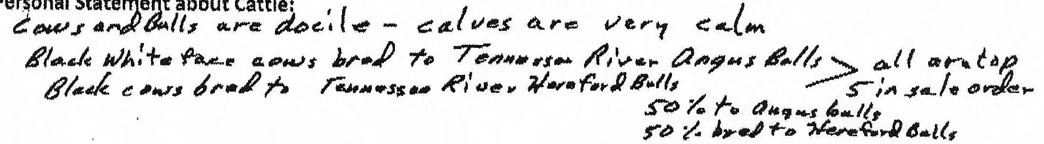 Personal Statement about Cattle:
Cows and Bulls are docile - calves are very calm
Black White face cows bred to Tennessee River Angus Bulls > all are top
Black cows bred to Tennessee River Hereford Bulls 5 in sale order
50% to Angus bulls
50% bred to Hereford Bulls